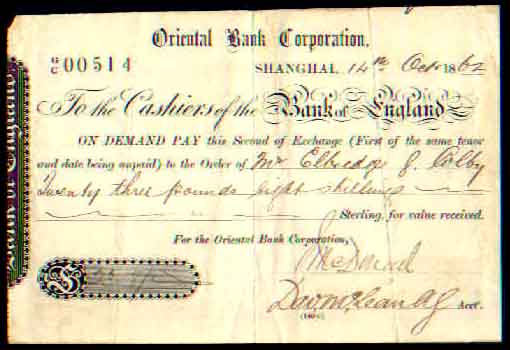 Oriental Bank Corporation.
No 00514
SHANGHAI, 14th Oct 1862
To the Cashiers of the Bank of England
ON DEMAND PAY this Second of Exchange (First of the same tenor
and date being unpaid) to the Order of Mr Elbridge G. Colby
Twenty three pounds eight shillings
Sterling, for value received.
For the Oriental Bank Corporation,
Acct.
Bank of England
£